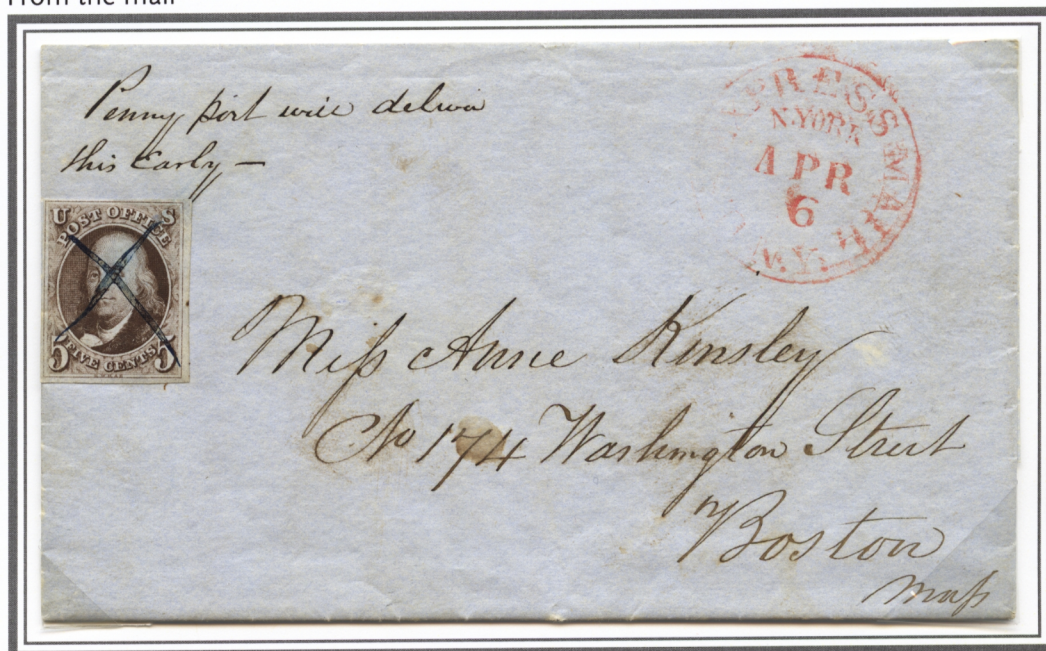 From the mail
Penny post will deliver
this Early —
U S
POST OFFICE
FIVE CENTS
5 5
EXPRESS MAIL
N.YORK
APR
6
N.Y.
Miss Anne Kinsley
No 174 Washington Street
Boston
Mass